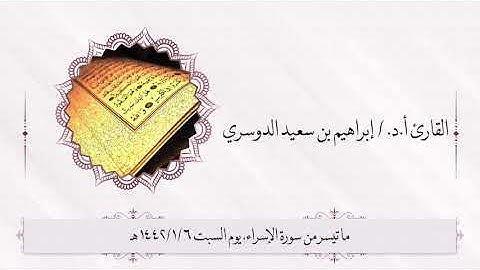 القارئ أ.د. / إبراهيم بن سعيد الدوسري
ما تيسر من سورة الإسراء، يوم السبت ١٤٤٢/١/٦هـ